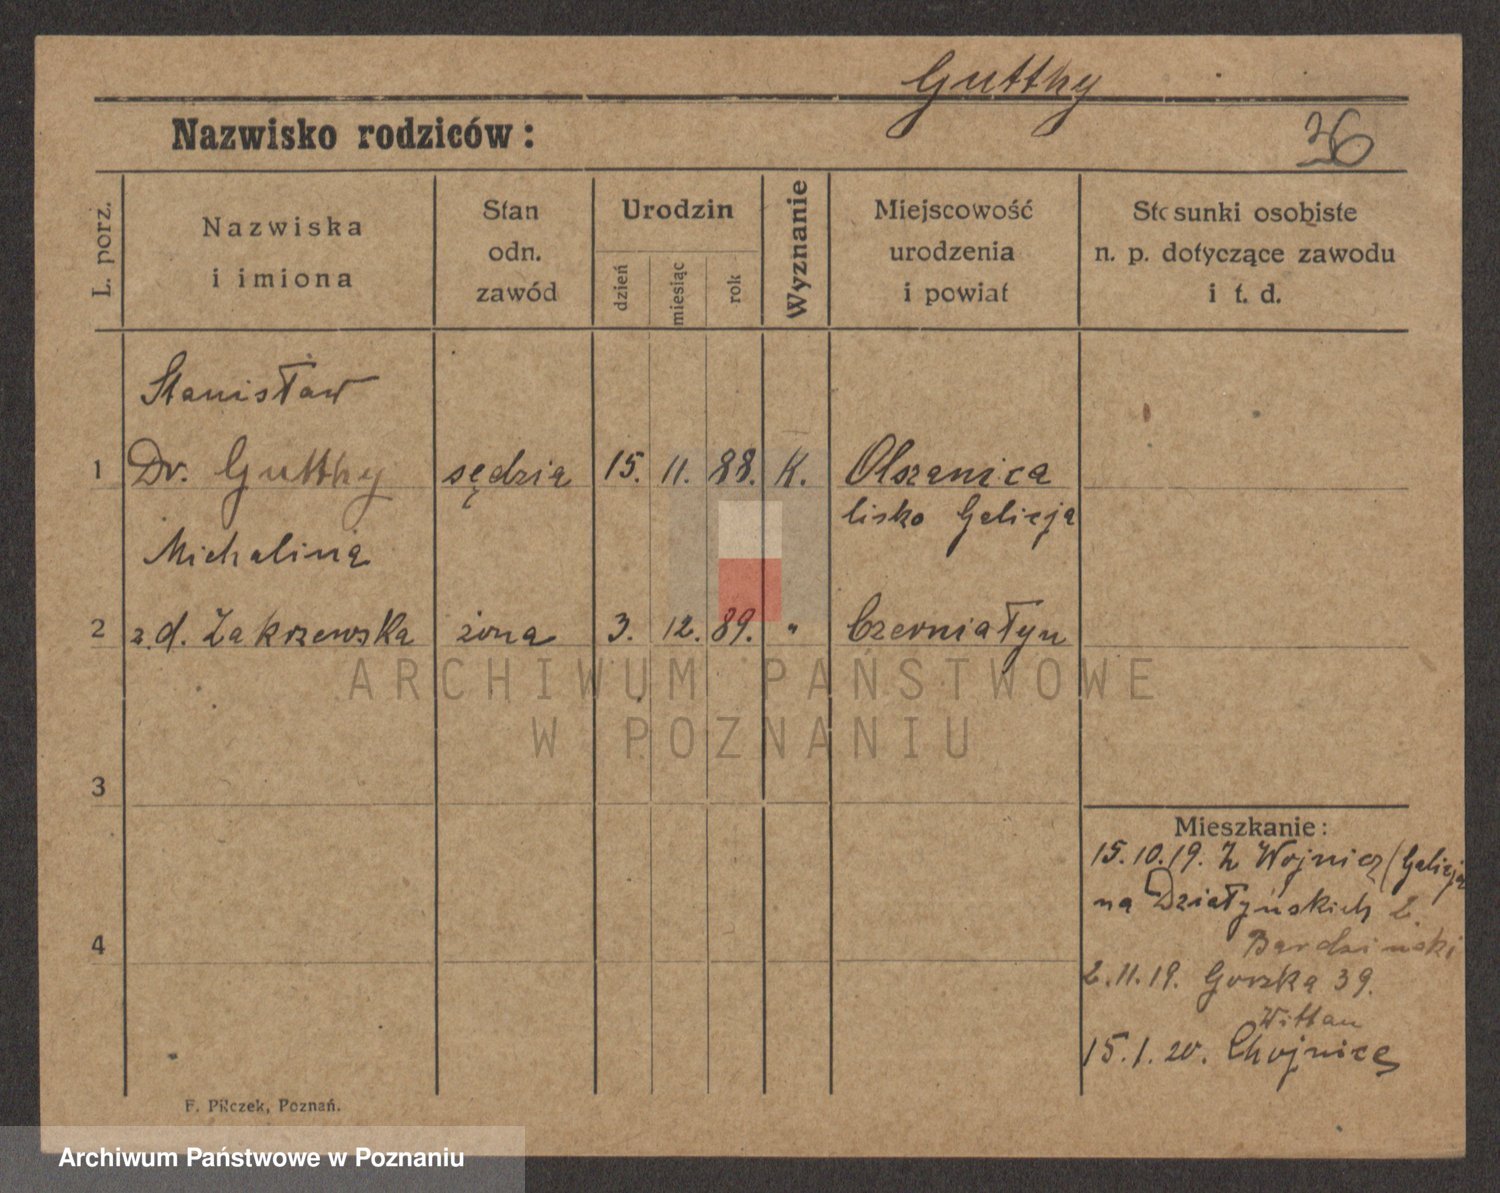 Gutthy
Nazwisko rodziców:
36
L. porz.
Nazwiska
i imiona
Stan
odn.
zawód
Urodzin
dzień
miesiąc
rok
Wyznanie
Miejscowość
urodzenia
i powiat
Stosunki osobiste
n. p. dotyczące zawodu
i t. d.
Stanisław
1 Dr. Gutthy sędzia 15. 11. 88. K. Olszanica
lisko Galicja
Michalina
2 z.d. Zakrzewska żona 3. 12. 89. " Czerniatyn
3
Mieszkanie:
15.10.19. Z Wojnicz (Galicja
na Działyńskich 2.
Bardziński
4
2.11.19. Gorzka 39.
Wittan
15.1.20. Chojnice
F. Pilczek, Poznań.
ARCHIWUM PAŃSTWOWE
W POZNANIU
Archiwum Państwowe w Poznaniu